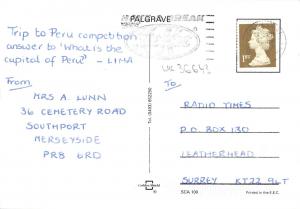 PALGRAVE
Trip to Peru competition
answer to 'What is the
capital of Peru' - LIMA
From
MRS A. LUNN
36 CEMETERY ROAD
SOUTHPORT
MERSEYSIDE
PR8 6RD
To
RADIO TIMES
P.O. BOX 130
LEATHERHEAD
SURREY KT22 9LT
SCA 109
Printed in the E.E.C.